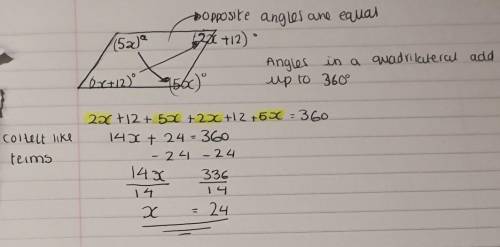 opposite angles are equal
(5x)° (2x+12)°
(2x+12)° (5x)°
Angles in a quadrilateral add
up to 360°
2x+12+5x+2x+12+5x=360
collect like
terms
14x+24=360
-24 -24
14x 336
14 14
x = 24